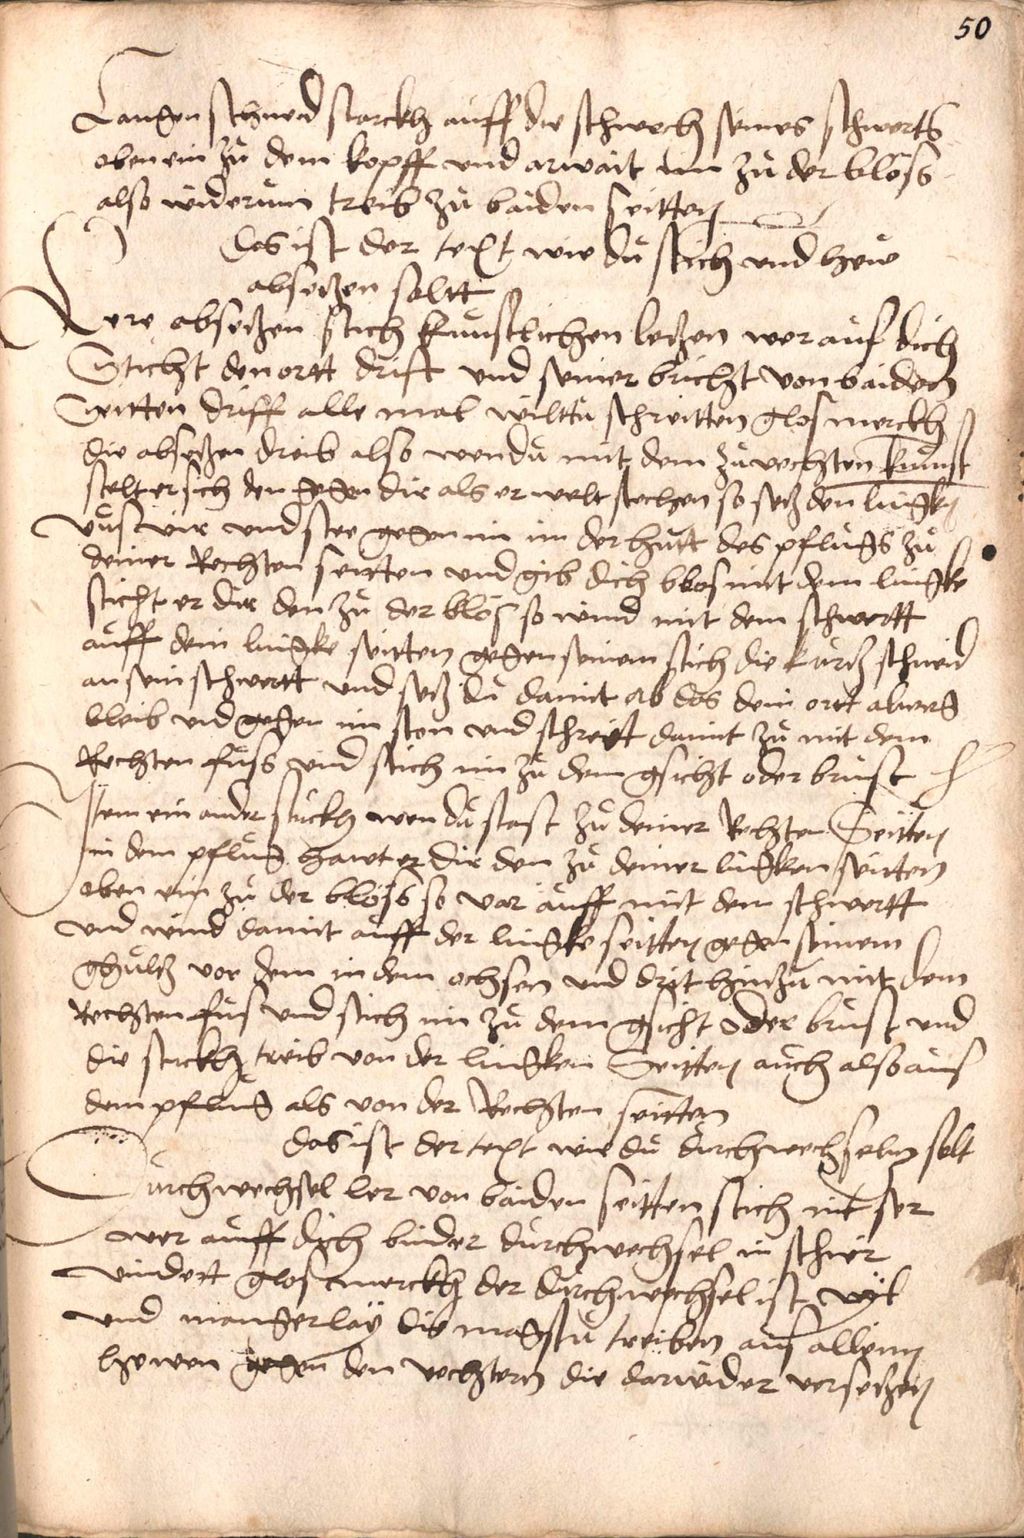 50
Langen schneid starckh auff die schwech seines schwerts
oben ein zů dem kopff und arwait im zů der blöss
also widerům treib zů baiden seitten
das ist der text wie dů stich und hew
abseczen soltt
Lere abseczen stich kunstlichen leczen wer auf dich
Sticht den ortt drift und seiner bricht von baiden
Seitten driff alle mal wilttu schreitten glos merckh
die abseczen dreib also wen dů mit dem zůvechten kumst
stelt er sich den gegen dir als er welt stechen so secz den lingken
vůs vir und stee gegen im in der hutt des pflůgs zů
deiner Rechten seitten und gib dich blos mit dem lingke
sticht er dir den zů der blös so wind mit dem schwertt
auff dein lingke seitten gegen seinem stich die kurcz schneid
an sein schwertt und secz dů damit ab das dein ortt alweg
bleib und gegen im sten und schreitt damit zů mit dem
Rechten fůss und stich im zů dem gsicht oder brůst
Item ein ander stuckh wen dů stast zů deiner Rechten Seitten
in dem pflůg hawt er dir den zů deiner lingken seitten
oben ein zů der blöss so var auff mit dem schwertt
und wind damit auff der lingke seitten gegen seinem
ghůlcz vor dem in dem ochsen und drit hinzů mit dem
Rechten fůs und stich im zů dem gsicht oder brůst und
die stuckh treib von der lingken Seitten auch also aus
dem pflug als von der Rechten seitten
das ist der text wie dů durchwechseln solt
Durchwechsel ler von baiden seitten stich mit ser
wer auff dich binder durchwechsel in schir
vindert glos merckh der durchwechsel ist vyl
und mangerlay die magstu treiben aus allenn
hewen gegen den vechtern die darwider verseczen